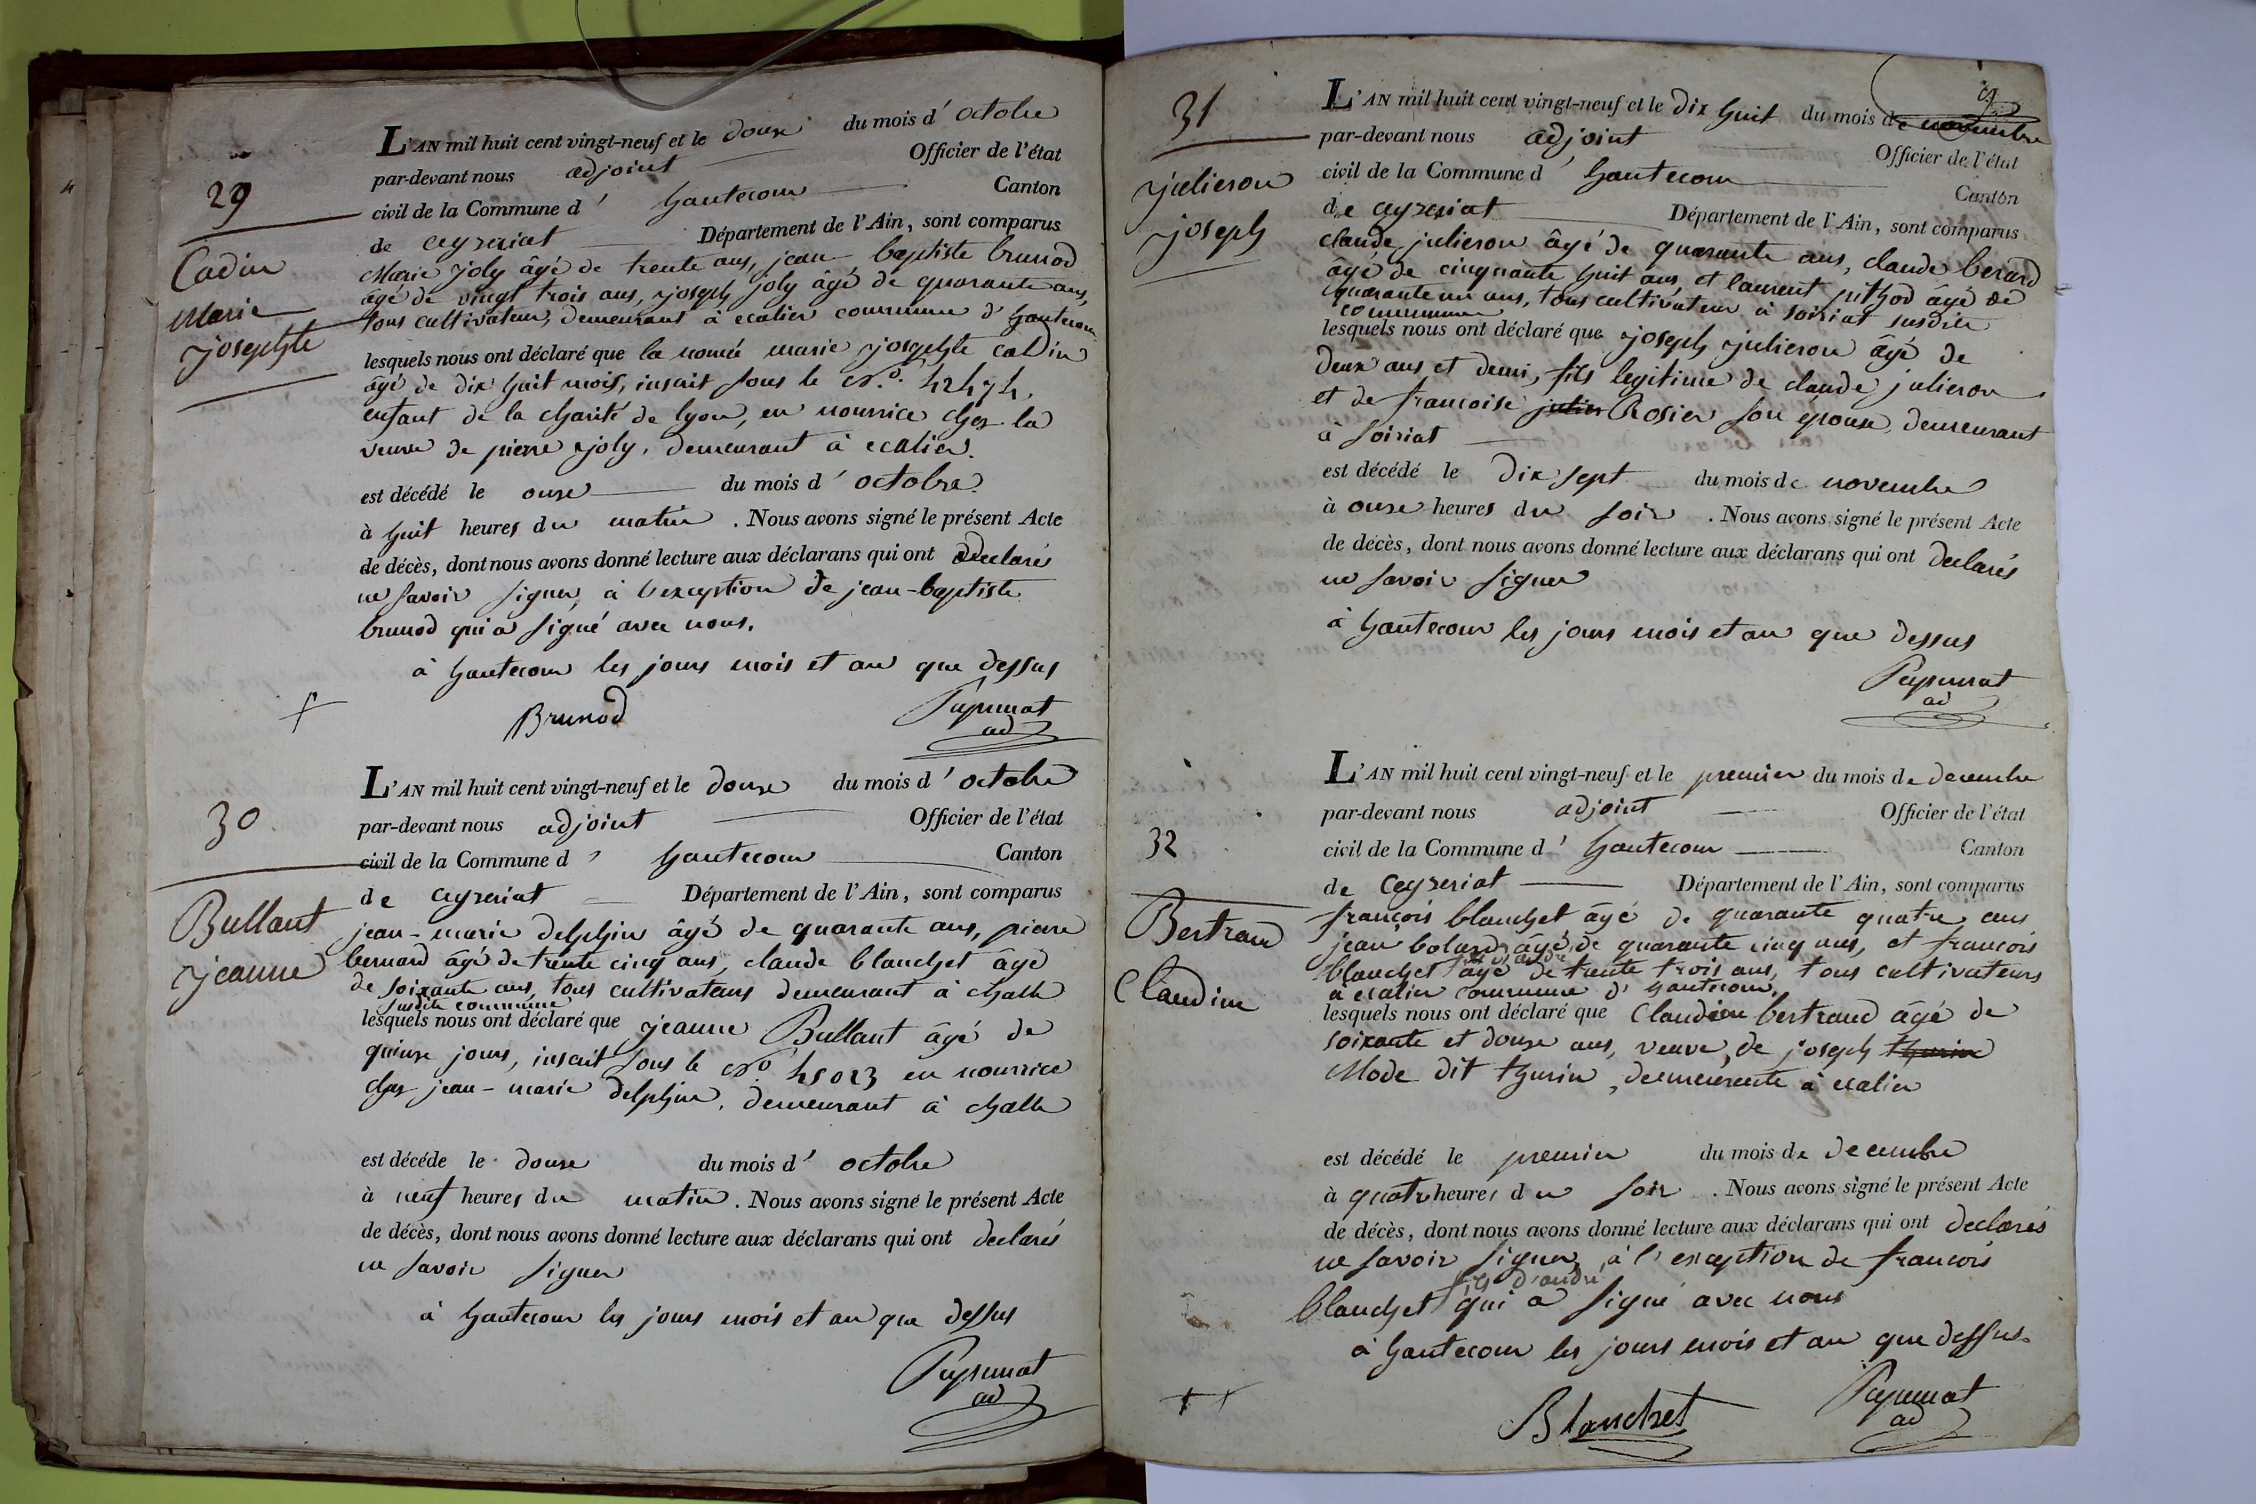 29
Cadin
Marie
josephte
L'AN mil huit cent vingt-neuf et le douze du mois d'octobre
par-devant nous adjoint Officier de l'état
civil de la Commune d'hautecour Canton
de ceyzeriat Département de l'Ain, sont comparus
Marie joly âgé de trente ans, jean baptiste brunod
âgé de vingt trois ans, joseph joly âgé de quarante ans,
tous cultivateur, demeurant à ecalier commune d'hautecour
lesquels nous ont déclaré que la nomée marie josephte cadin
âgé de dix huit mois, inscrit sous le N.o 42474.
enfant de la charité de lyon, en nourrice chez la
veuve de pierre joly, demeurant à ecalier.
est décédé le onze du mois d'octobre
à huit heures du matin. Nous avons signé le présent Acte
de décès, dont nous avons donné lecture aux déclarans qui ont declarés
ne savoir signer, à l'exception de jean-baptiste
brunod qui a signé avec nous.
à hautecour les jours mois et an que dessus
Brunod
ad
30
Bullant
jeanne
L'AN mil huit cent vingt-neuf et le douze du mois d'octobre
par-devant nous adjoint Officier de l'état
civil de la Commune d'hautecour Canton
de ceyzeriat Département de l'Ain, sont comparus
jean-marie delphin âgé de quarante ans, pierre
bernard âgé de trente cinq ans, claude blanchet âgé
de soixante ans, tous cultivateurs demeurant à challe
susdite commune
lesquels nous ont déclaré que jeanne Bullant âgé de
quinze jours, inscrit sous le N.o 45023 en nourrice
chez jean-marie delphin, demeurant à challe
est décéde le douze du mois d'octobre
à neuf heures du matin. Nous avons signé le présent Acte
de décès, dont nous avons donné lecture aux déclarans qui ont declarés
ne savoir signer
à hautecour les jours mois et an que dessus
ad
31
julieron
joseph
L'AN mil huit cent vingt-neuf et le dix huit du mois de novembre
par-devant nous adjoint Officier de l'état
civil de la Commune d'hautecour Canton
de ceyzeriat Département de l'Ain, sont comparus
claude julieron âgé de quarante ans, claude berard
âgé de cinquante huit ans, et laurent pithod âgé de
quarante un ans, tous cultivateur à soiriat susdite
commune
lesquels nous ont déclaré que joseph julieron âgé de
deux ans et demi, fils legitime de claude julieron
et de francoise julier Rosier son épouse, demeurant
à soiriat
est décédé le dix sept du mois de novembre
à onze heures du soir. Nous avons signé le présent Acte
de décès, dont nous avons donné lecture aux déclarans qui ont declarés
ne savoir signer
à hautecour les jours mois et an que dessus
ad
32
Bertrand
Claudine
L'AN mil huit cent vingt-neuf et le premier du mois de decembre
par-devant nous adjoint Officier de l'état
civil de la Commune d'hautecour Canton
de Ceyzeriat Département de l'Ain, sont comparus
françois blanchet âgé de quarante quatre ans
jean bolard âgé de quarante cinq ans, et francois
blanchet fils d'andré âgé de trente trois ans, tous cultivateurs
à ecalier commune d'hautecour.
lesquels nous ont déclaré que Claudine bertrand âgé de
soixante et douze ans, veuve, de joseph thurin
Mode dit thurin, demeurente à ecalier
est décédé le premier du mois de decembre
à quatre heures du soir. Nous avons signé le présent Acte
de décès, dont nous avons donné lecture aux déclarans qui ont declarés
ne savoir signer, à l'exception de francois
blanchet fils d'andré qui a signé avec nous
à hautecour les jours mois et an que dessus.
Blanchet
ad